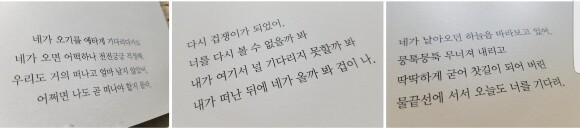 네가 오기를 애타게 기다리다가도
네가 오면 어떡하나 전전긍긍 걱정해.
우리도 거의 떠나고 얼마 남지 않았어.
어쩌면 나도 곧 떠나야 할지 몰라.
다시 겁쟁이가 되었어.
너를 다시 볼 수 없을까 봐
내가 여기서 널 기다리지 못할까 봐
내가 떠난 뒤에 네가 올까 봐 겁이 나.
네가 날아오던 하늘을 바라보고 있어.
뭉툭뭉툭 무너져 내리고
딱딱하게 굳어 찻길이 되어 버린
물끝선에 서서 오늘도 너를 기다려.